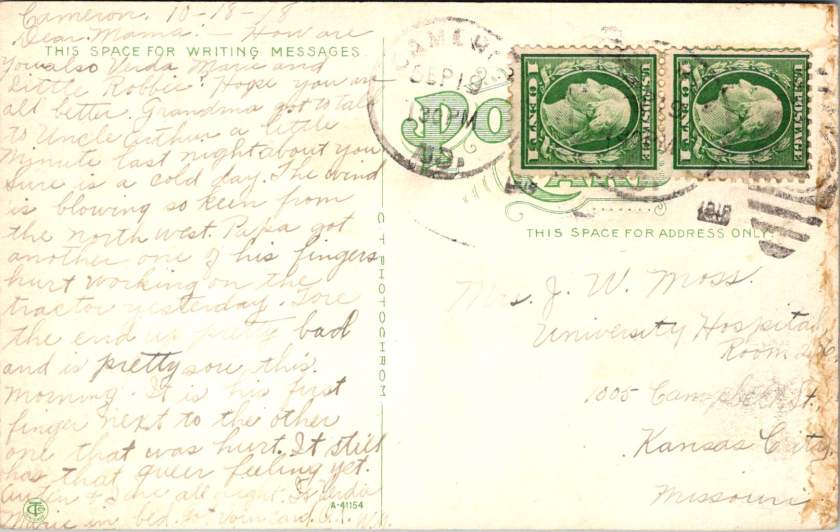 Cameron. 10-18-18
Dear Mama:- How are
THIS SPACE FOR WRITING MESSAGES
you also Verda Marie and
little Robbie? Hope you are
all better. Grandma got to talk
to Uncle Arthur a little
minute last night about you
Sure is a cold day. The wind
is blowing so keen from
the north west. Papa got
another one of his fingers
hurt working on the
tractor yesterday. Tore
the end up pretty bad
and is pretty sore this
morning. It is his first
finger next to the other
one that was hurt. It still
has that queer feeling yet.
all right. Is Verda
Marie in bed
C T PHOTOCHROM
A-41154
CAMERON
SEP 19
30 PM
1918
POST CARD
U.S. POSTAGE
1 CENT 1
U.S. POSTAGE
1 CENT 1
THIS SPACE FOR ADDRESS ONLY.
Mrs. J. W. Moss.
University Hospital
Room
1005 Campbell St.
Kansas City,
Missouri